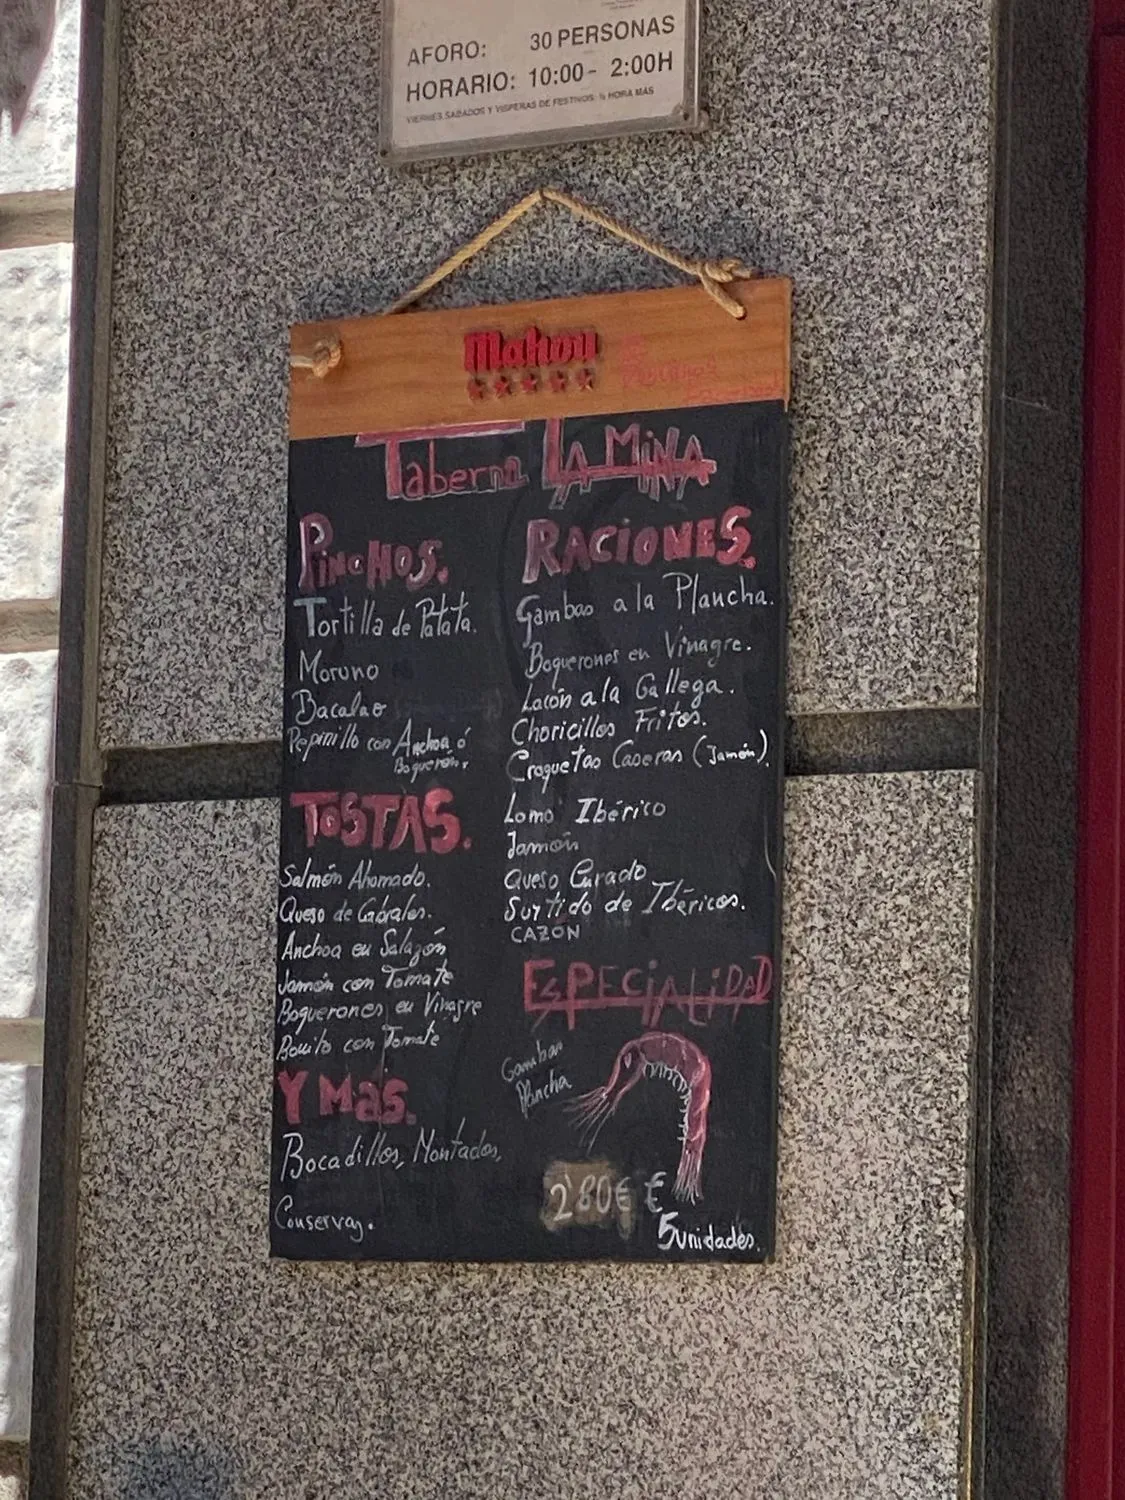 AFORO: 30 PERSONAS
HORARIO: 10:00 - 2:00H
VIERNES SABADOS Y VISPERAS DE FESTIVOS: ½ HORA MAS
Mahou
Taberna LA MiNA
PINCHOS.
Tortilla de Patata.
Moruno
Bacalao
Pepinillo con Anchoa ó
Boquerón.
TOSTAS.
Salmón Ahumado.
Queso de Cabrales.
Anchoa en Salazón
Jamón con Tomate
Boquerones en Vinagre
Bonito con Tomate
Y Más.
Bocadillos, Montados,
Conservas.
RACiONES.
Gambas a la Plancha.
Boquerones en Vinagre.
Lacón a la Gallega.
Choricillos Fritos.
Croquetas Caseras (Jamón).
Lomo Ibérico
Jamón
Queso Curado
Surtido de Ibéricos.
CAZÓN
ESPECiALiDAD
Gambas
Plancha
2'80€ €
5unidades.